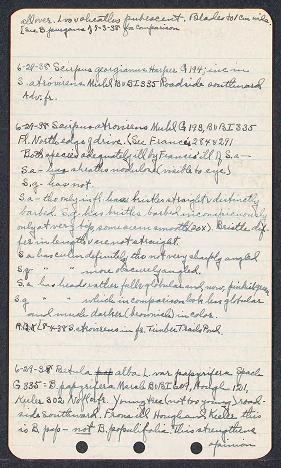 all over. Involucellas pubescent. Blades to 1 cm wide.
(See B. purgans of 7-3-38 for comparison
6-28-38 Scirpus georgianus Harper G 194; inc in
S. atrovirens Muhl BvBI 335 Roadside southward
Adv. fr.
6-29-38 Scirpus atrovirens Muhl G 193, BvBI 335
Fl. North edge of drive. (See Francis 284 v 291
Both species adequately ill by Frances' ill of S.a -
S.a - has sheaths nodulose (visible to eye)
S.g - has not.
S.a - the only ill has bristles straight v distinctly
barbed. S.g. has bristles barbed inconspicuously
only at very top, some seem smooth (20x). Bristles dif-
fer in length v are not straight.
S.a has culm definitely tho not very sharply angled
S.g " " more obscurely angled.
S.a has heads rather fuller, globular and now, pinkish green
S.g " " which in comparison look less globular
and much darker (brownish) in color.
8-4-38 S. atrovirens in fr. Timber Trails Pond
6-29-38 Betula alba L. var papyrifera Spach
G 335 - B. papyrifera Marsh BvBI 609, Hough 121,
Keeler 302 No fl or fr. Young tree (not too young) road-
side southward. From ill Hough and Keeler this
is B. pap - not B. populifolia. This strengthens
opinion